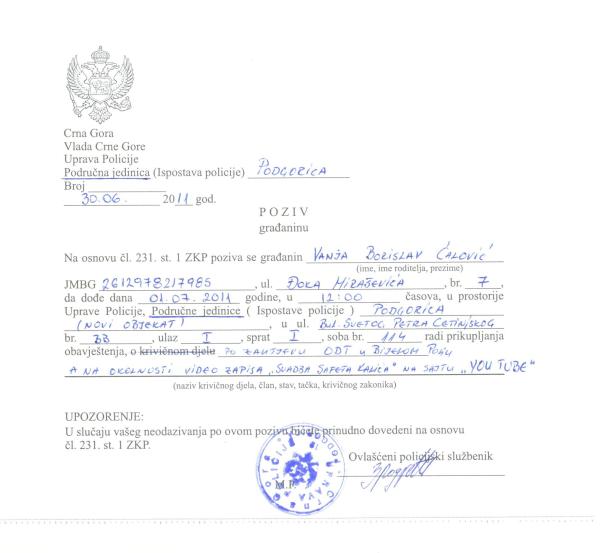 Crna Gora
Vlada Crne Gore
Uprava Policije
Područna jedinica (Ispostava policije) PODGORICA
Broj
30.06. 2011 god.
P O Z I V
građaninu
Na osnovu čl. 231. st. 1 ZKP poziva se građanin VANJA BORISLAV ĆALOVIĆ
(ime, ime roditelja, prezime)
JMBG 2612978217985, ul. ĐOKA MIRAŠEVIĆA, br. 7,
da dođe dana 01.07.2011 godine, u 12:00 časova, u prostorije
Uprave Policije, Područne jedinice ( Ispostave policije ) PODGORICA
(NOVI OBJEKAT), u ul. BUL. SVETOG PETRA CETINJSKOG
br. BB, ulaz I, sprat I, soba br. 114 radi prikupljanja
obavještenja, o krivičnom djelu PO ZAHTJEVU ODT U BIJELOM POLJU
A NA OKOLNOSTI VIDEO ZAPISA „SVADBA SAFETA KALIĆA" NA SAJTU „YOU TUBE"
(naziv krivičnog djela, član, stav, tačka, krivičnog zakonika)
UPOZORENJE:
U slučaju vašeg neodazivanja po ovom pozivu bićete prinudno dovedeni na osnovu
čl. 231. st. 1 ZKP.
Ovlašćeni policijski službenik
M.P.